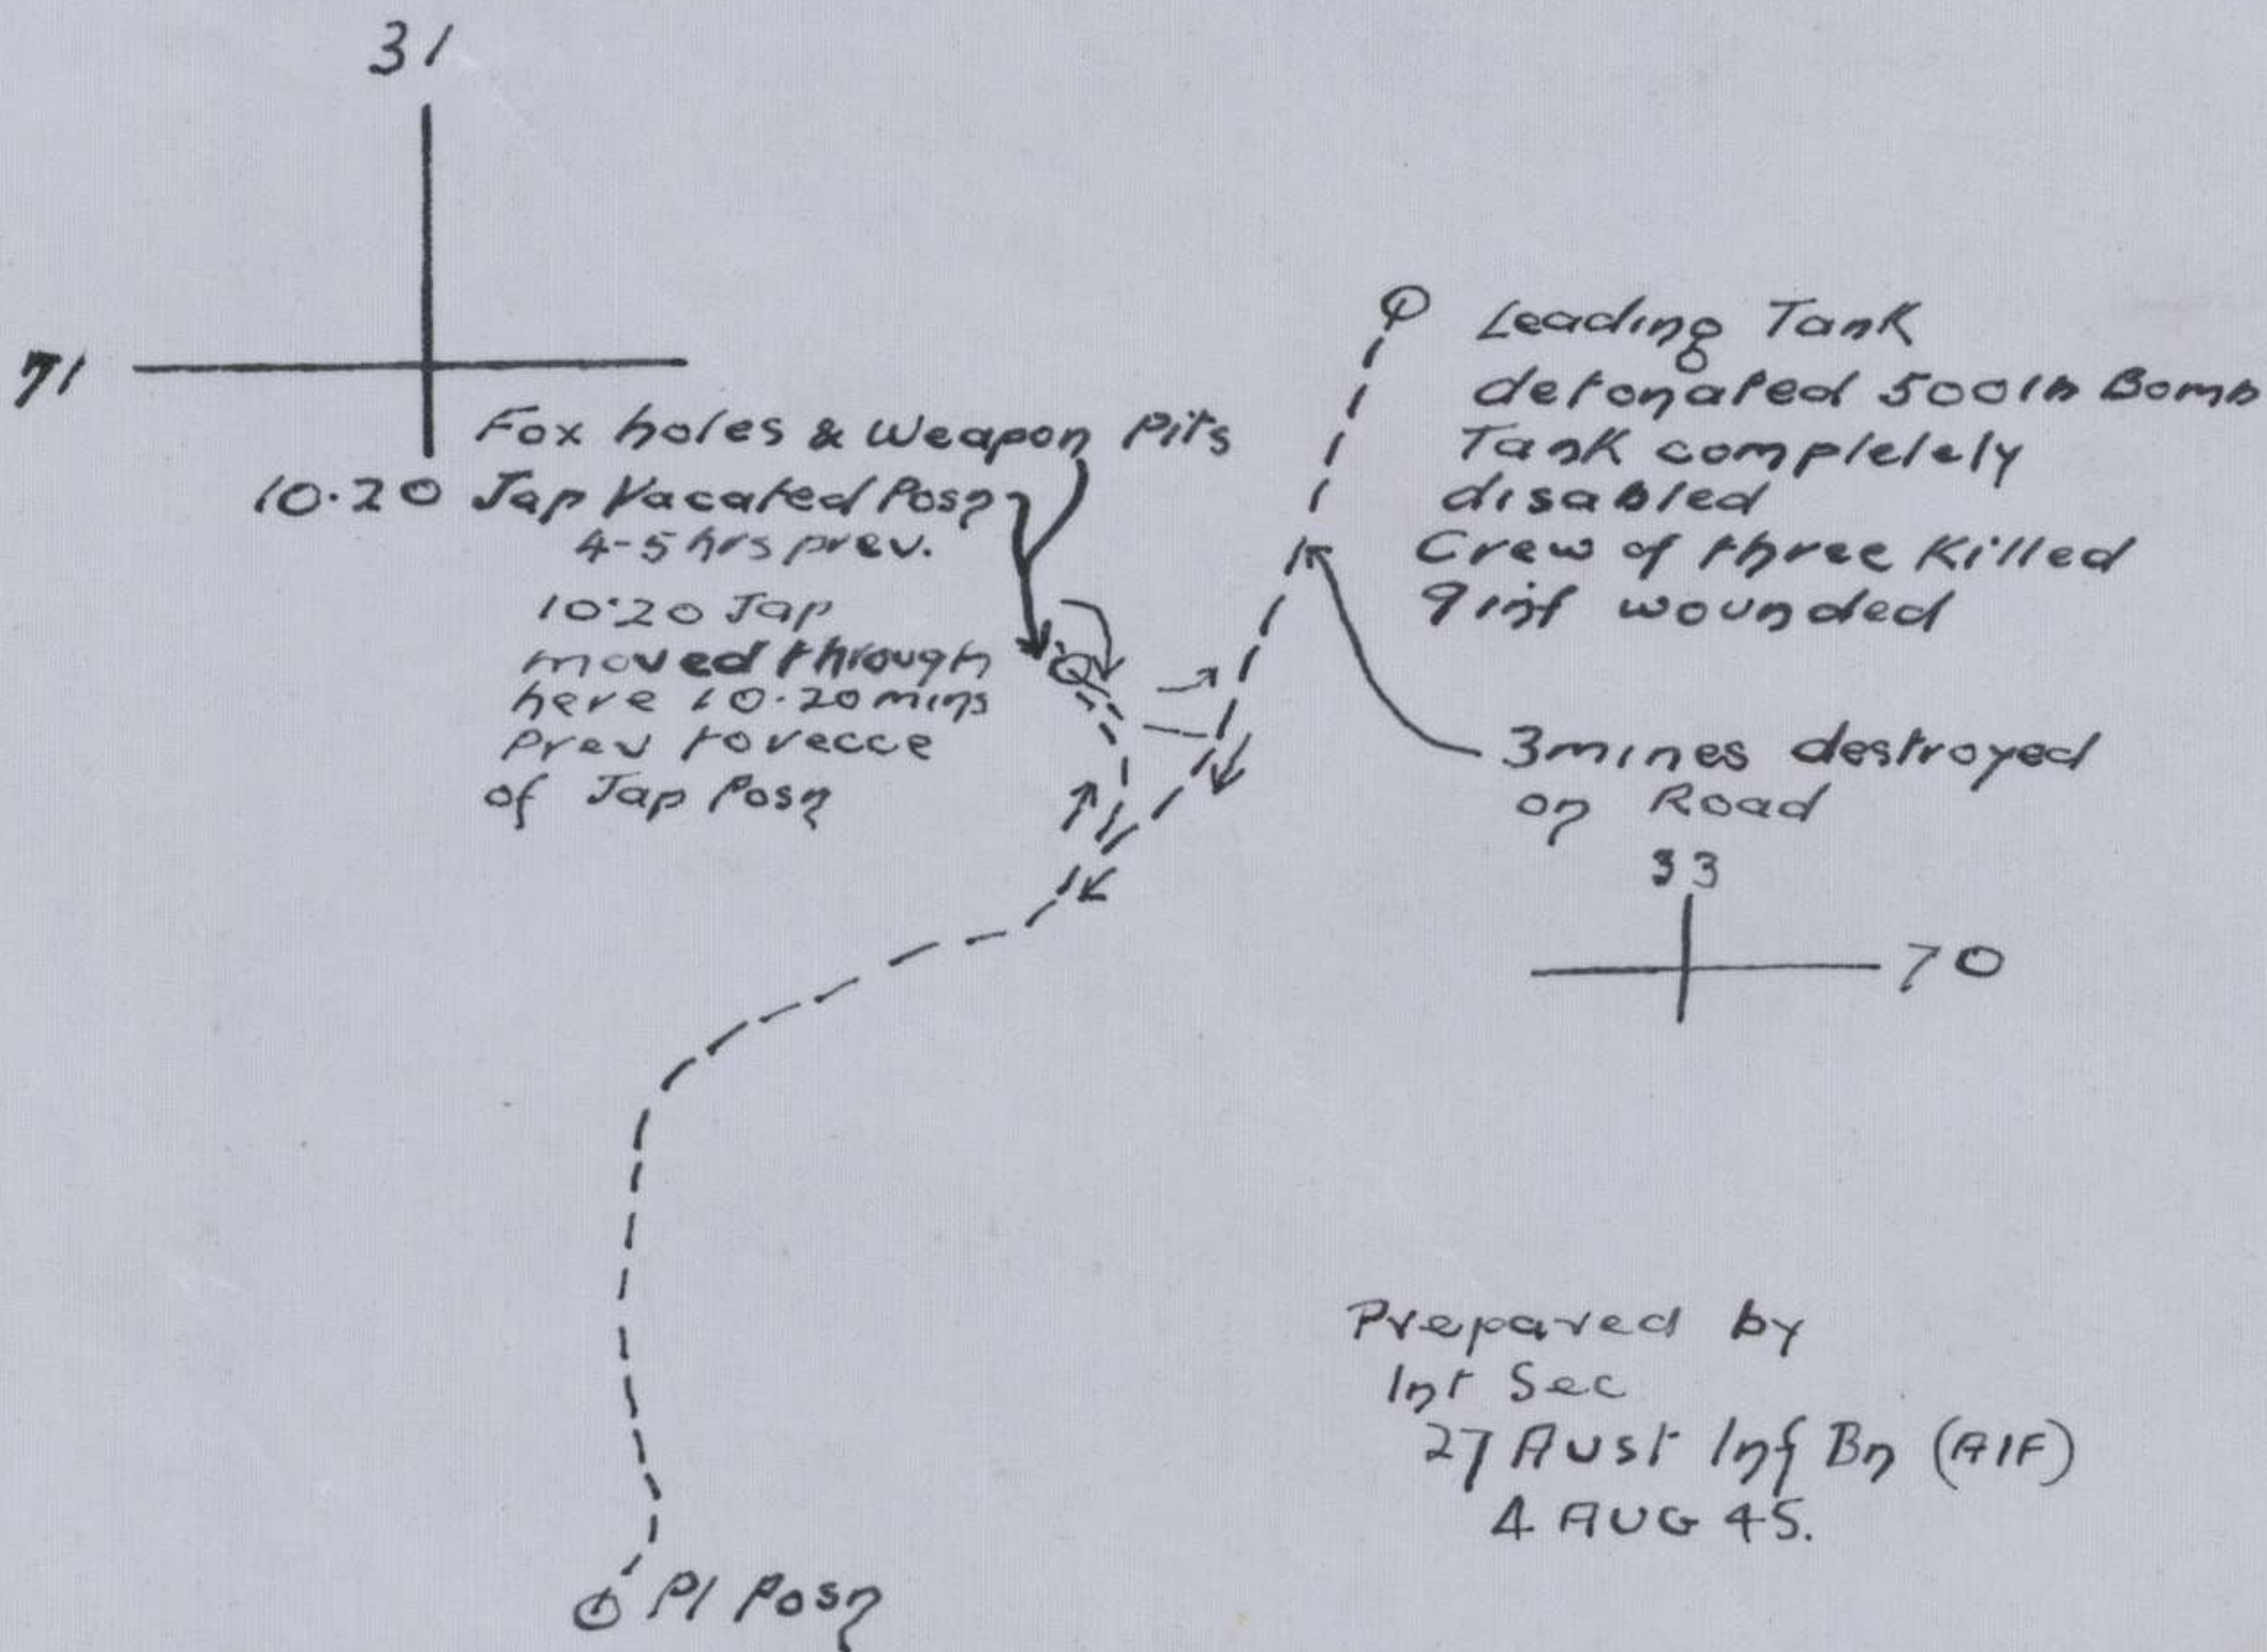 31
71
Fox holes & Weapon Pits
10.20 Jap Vacated Posn
4-5 hrs prev.
10.20 Jap
moved through
here 10.20 mins
Prev to recce
of Jap Posn
Leading Tank
detonated 500lb Bomb
Tank completely
disabled
Crew of three Killed
9 inf wounded
3 mines destroyed
on Road
33
70
Prepared by
Int Sec
27 Aust Inf Bn (AIF)
4 AUG 45.
Pl Posn